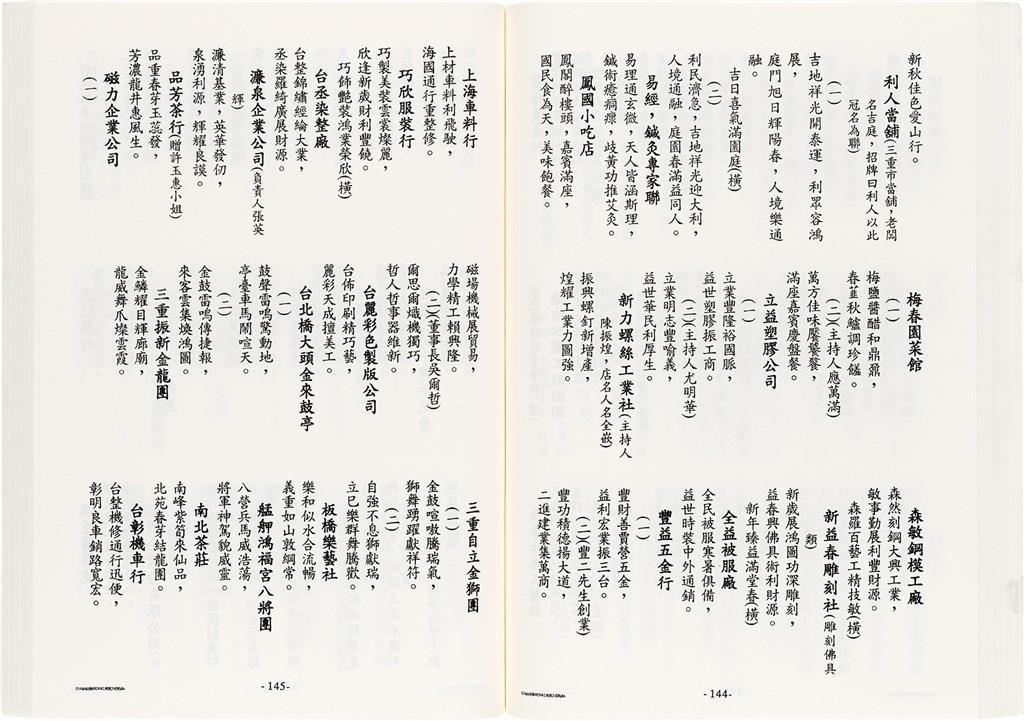 新秋佳色愛山行。
利人當舖(三重市當舖,老闆
名吉庭,招牌曰利人以此
冠名為聯)
(一)
吉地祥光開泰運,利眾容鴻
展,
庭門旭日輝陽春,人境樂通
融。
吉日喜氣滿園庭(橫)
(二)
利民濟急,吉地祥光迎大利,
人境通融,庭園春滿益同人。
易經,鍼灸專家聯
易理通玄微,天人皆涵斯理,
鍼術癒痌瘝,歧黃功推艾灸。
鳳國小吃店
鳳閣醉樓頭,嘉賓滿座,
國民食為天,美味飽餐。
梅春園菜館
(一)
梅鹽醬醋和鼎鼐,
春韮秋鱸調珍饈。
(二)(主持人應萬滿)
萬方佳味饜饕餮,
滿座嘉賓慶盤餐。
立益塑膠公司
(一)
立業豐隆裕國脈,
益世塑膠振工商。
(二)(主持人尤明華)
立業明志豐喻義,
益世華民利厚生。
新力螺絲工業社(主持人
陳振煌,店名人名全嵌)
振興螺釘新增產,
煌耀工業力圖強。
森敏鋼模工廠
森然刻鋼大興工業,
敏事勤展利豐財源。
森羅百藝工精技敏(橫)
新益春雕刻社(雕刻佛具
類)
新歲展鴻圖功深雕刻,
益春興佛具術利財源。
新年臻益滿堂春(橫)
全益被服廠
全民被服寒暑俱備,
益世時裝中外通銷。
豐益五金行
(一)
豐財善賈營五金,
益利宏業振三台。
(二)(豐二先生創業)
豐功積德揚大道,
二進建業集萬商。
-144-
上海車料行
上材車料利飛駛,
海國通行重整修。
巧欣服裝行
巧製美裝雲裳燦麗,
欣逢新歲財利豐饒。
巧飾艷裝鴻業榮欣(橫)
台丞染整廠
台整錦繡經綸大業,
丞染羅綺廣展財源。
濂泉企業公司(負責人張英
輝)
濂清基業,英華發仞,
泉湧利源,輝耀良謨。
品芳茶行(贈許玉惠小姐)
品重春芽玉蕊發,
芳濃龍井惠風生。
磁力企業公司
(一)
磁場機械展貿易,
力學精工賴興隆。
(二)(董事長吳爾哲)
爾思爾熾機獨巧,
哲人哲事器維新。
台麗彩色製版公司
台佈印刷精巧藝,
麗彩天成擅美工。
台北橋大頭金來鼓亭
(一)
鼓聲雷鳴驚動地,
亭臺車馬鬧喧天。
(二)
金鼓雷鳴傳捷報,
來客雲集煥鴻圖。
三重振新金龍團
金鱗耀目輝廊廟,
龍威舞爪燦雲霞。
三重自立金獅團
(一)
金鼓喧嗷騰瑞氣,
獅舞踴躍獻祥符。
(二)
自強不息獅獻瑞,
立已樂群舞騰歡。
板橋樂藝社
樂和似水合流暢,
義重如山敦綱常。
艋舺鴻福宮八將團
八營兵馬威浩蕩,
將軍神駕貌威靈。
南北茶莊
南峰紫筍來仙品,
北苑春芽結龍團。
台彰機車行
台整機修通行迅便,
彰明良車銷路寬宏。
-145-